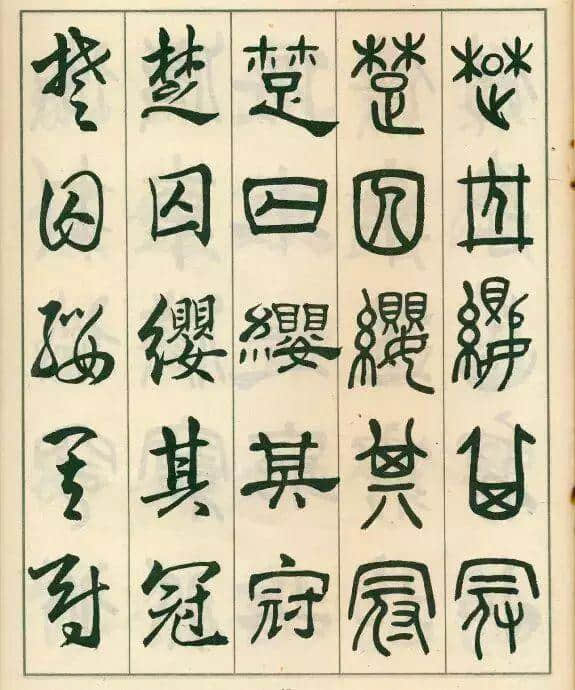 楚囚纓其冠
楚囚纓其冠
楚囚纓其冠
楚囚纓其冠
楚囚纓其冠